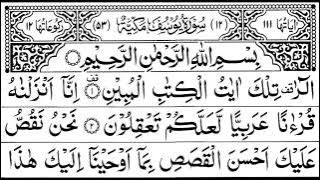 اٰیَاتُهَا ١١١ (١٢) سُوْرَةُ يُوْسُفَ مَكِّيَّةٌ (٥٣) رُكُوْعَاتُهَا ١٢
بِسْمِ اللّٰهِ الرَّحْمٰنِ الرَّحِيْمِ
الٓرٰ تِلْكَ اٰيٰتُ الْكِتٰبِ الْمُبِيْنِ ۝١ اِنَّاۤ اَنْزَلْنٰهُ
قُرْءٰنًا عَرَبِيًّا لَّعَلَّكُمْ تَعْقِلُوْنَ ۝٢ نَحْنُ نَقُصُّ
عَلَيْكَ اَحْسَنَ الْقَصَصِ بِمَاۤ اَوْحَيْنَاۤ اِلَيْكَ هٰذَا